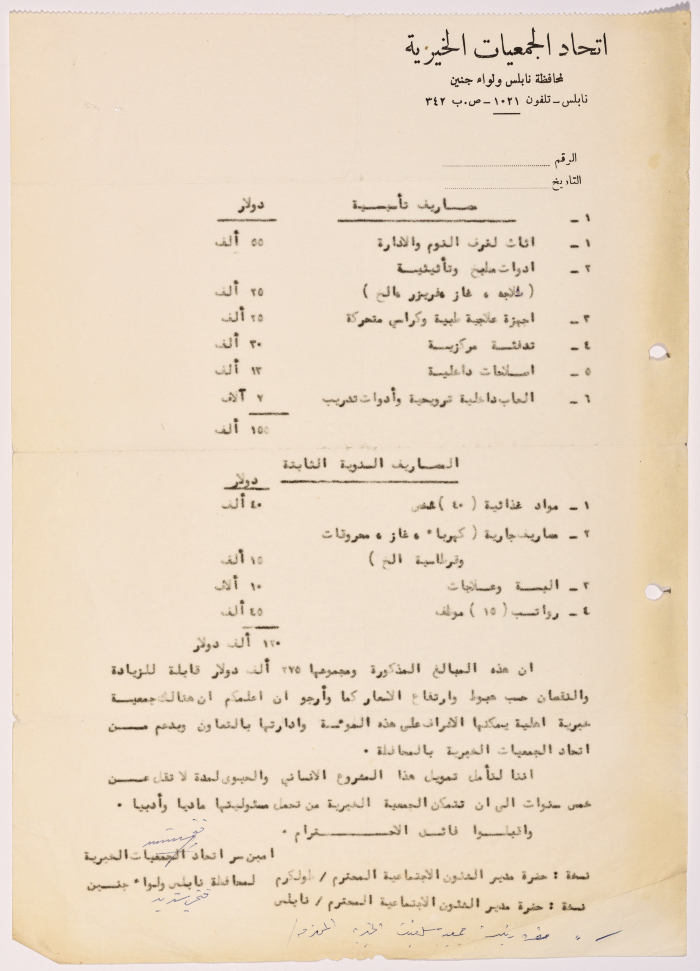 اتحاد الجمعيات الخيرية
لمحافظة نابلس ولواء جنين
نابلس ـ تلفون ١٠٢١ ـ ص.ب ٣٤٢
الرقم
التاريخ
١ ـ مصاريف تأسيسية دولار
١ ـ اثاث لغرف النوم والادارة ٥٥ ألف
٢ ـ ادوات مطبخ وتأثيثية
( ثلاجه ، غاز ، فريزر ، الخ ) ٢٥ ألف
٣ ـ اجهزة علاجية طبية وكراسي متحركة ٢٥ ألف
٤ ـ تدفئة مركزية ٣٠ ألف
٥ ـ اصلاحات داخلية ١٣ ألف
٦ ـ العاب داخلية ترويحية وأدوات تدريب ٧ آلاف
١٥٥ ألف
المصاريف السنوية الثابتة
دولار
١ ـ مواد غذائية ( ٤٠ ) شخص ٤٠ ألف
٢ ـ مصاريف جارية ( كهرباء ، غاز ، محروقات
وقرطاسية الخ ) ١٥ ألف
٣ ـ البسة وعلاجات ١٠ آلاف
٤ ـ رواتب ( ١٥ ) موظف ٤٥ ألف
١٢٠ ألف دولار
ان هذه المبالغ المذكورة ومجموعها ٢٧٥ ألف دولار قابلة للزيادة
والنقصان حسب هبوط وارتفاع الاسعار كما وأرجو ان اعلمكم ان هنالك جمعية
خيرية اهلية يمكنها الاشراف على هذه المؤسسة وادارتها بالتعاون وبدعم من
اتحاد الجمعيات الخيرية بالمحافظة .
اننا لنأمل تمويل هذا المشروع الانساني والحيوي لمدة لا تقل عن
خمس سنوات الى ان تتمكن الجمعية الخيرية من تحمل مسئوليتها ماديا وأدبيا .
واقبلوا فائق الاحترام .
امين سر اتحاد الجمعيات الخيرية
لمحافظة نابلس ولواء جنين
نسخة : حضرة مدير الشئون الاجتماعية المحترم / طولكرم
نسخة : حضرة مدير الشئون الاجتماعية المحترم / نابلس
حضرة رئيسة جمعية الخيرية